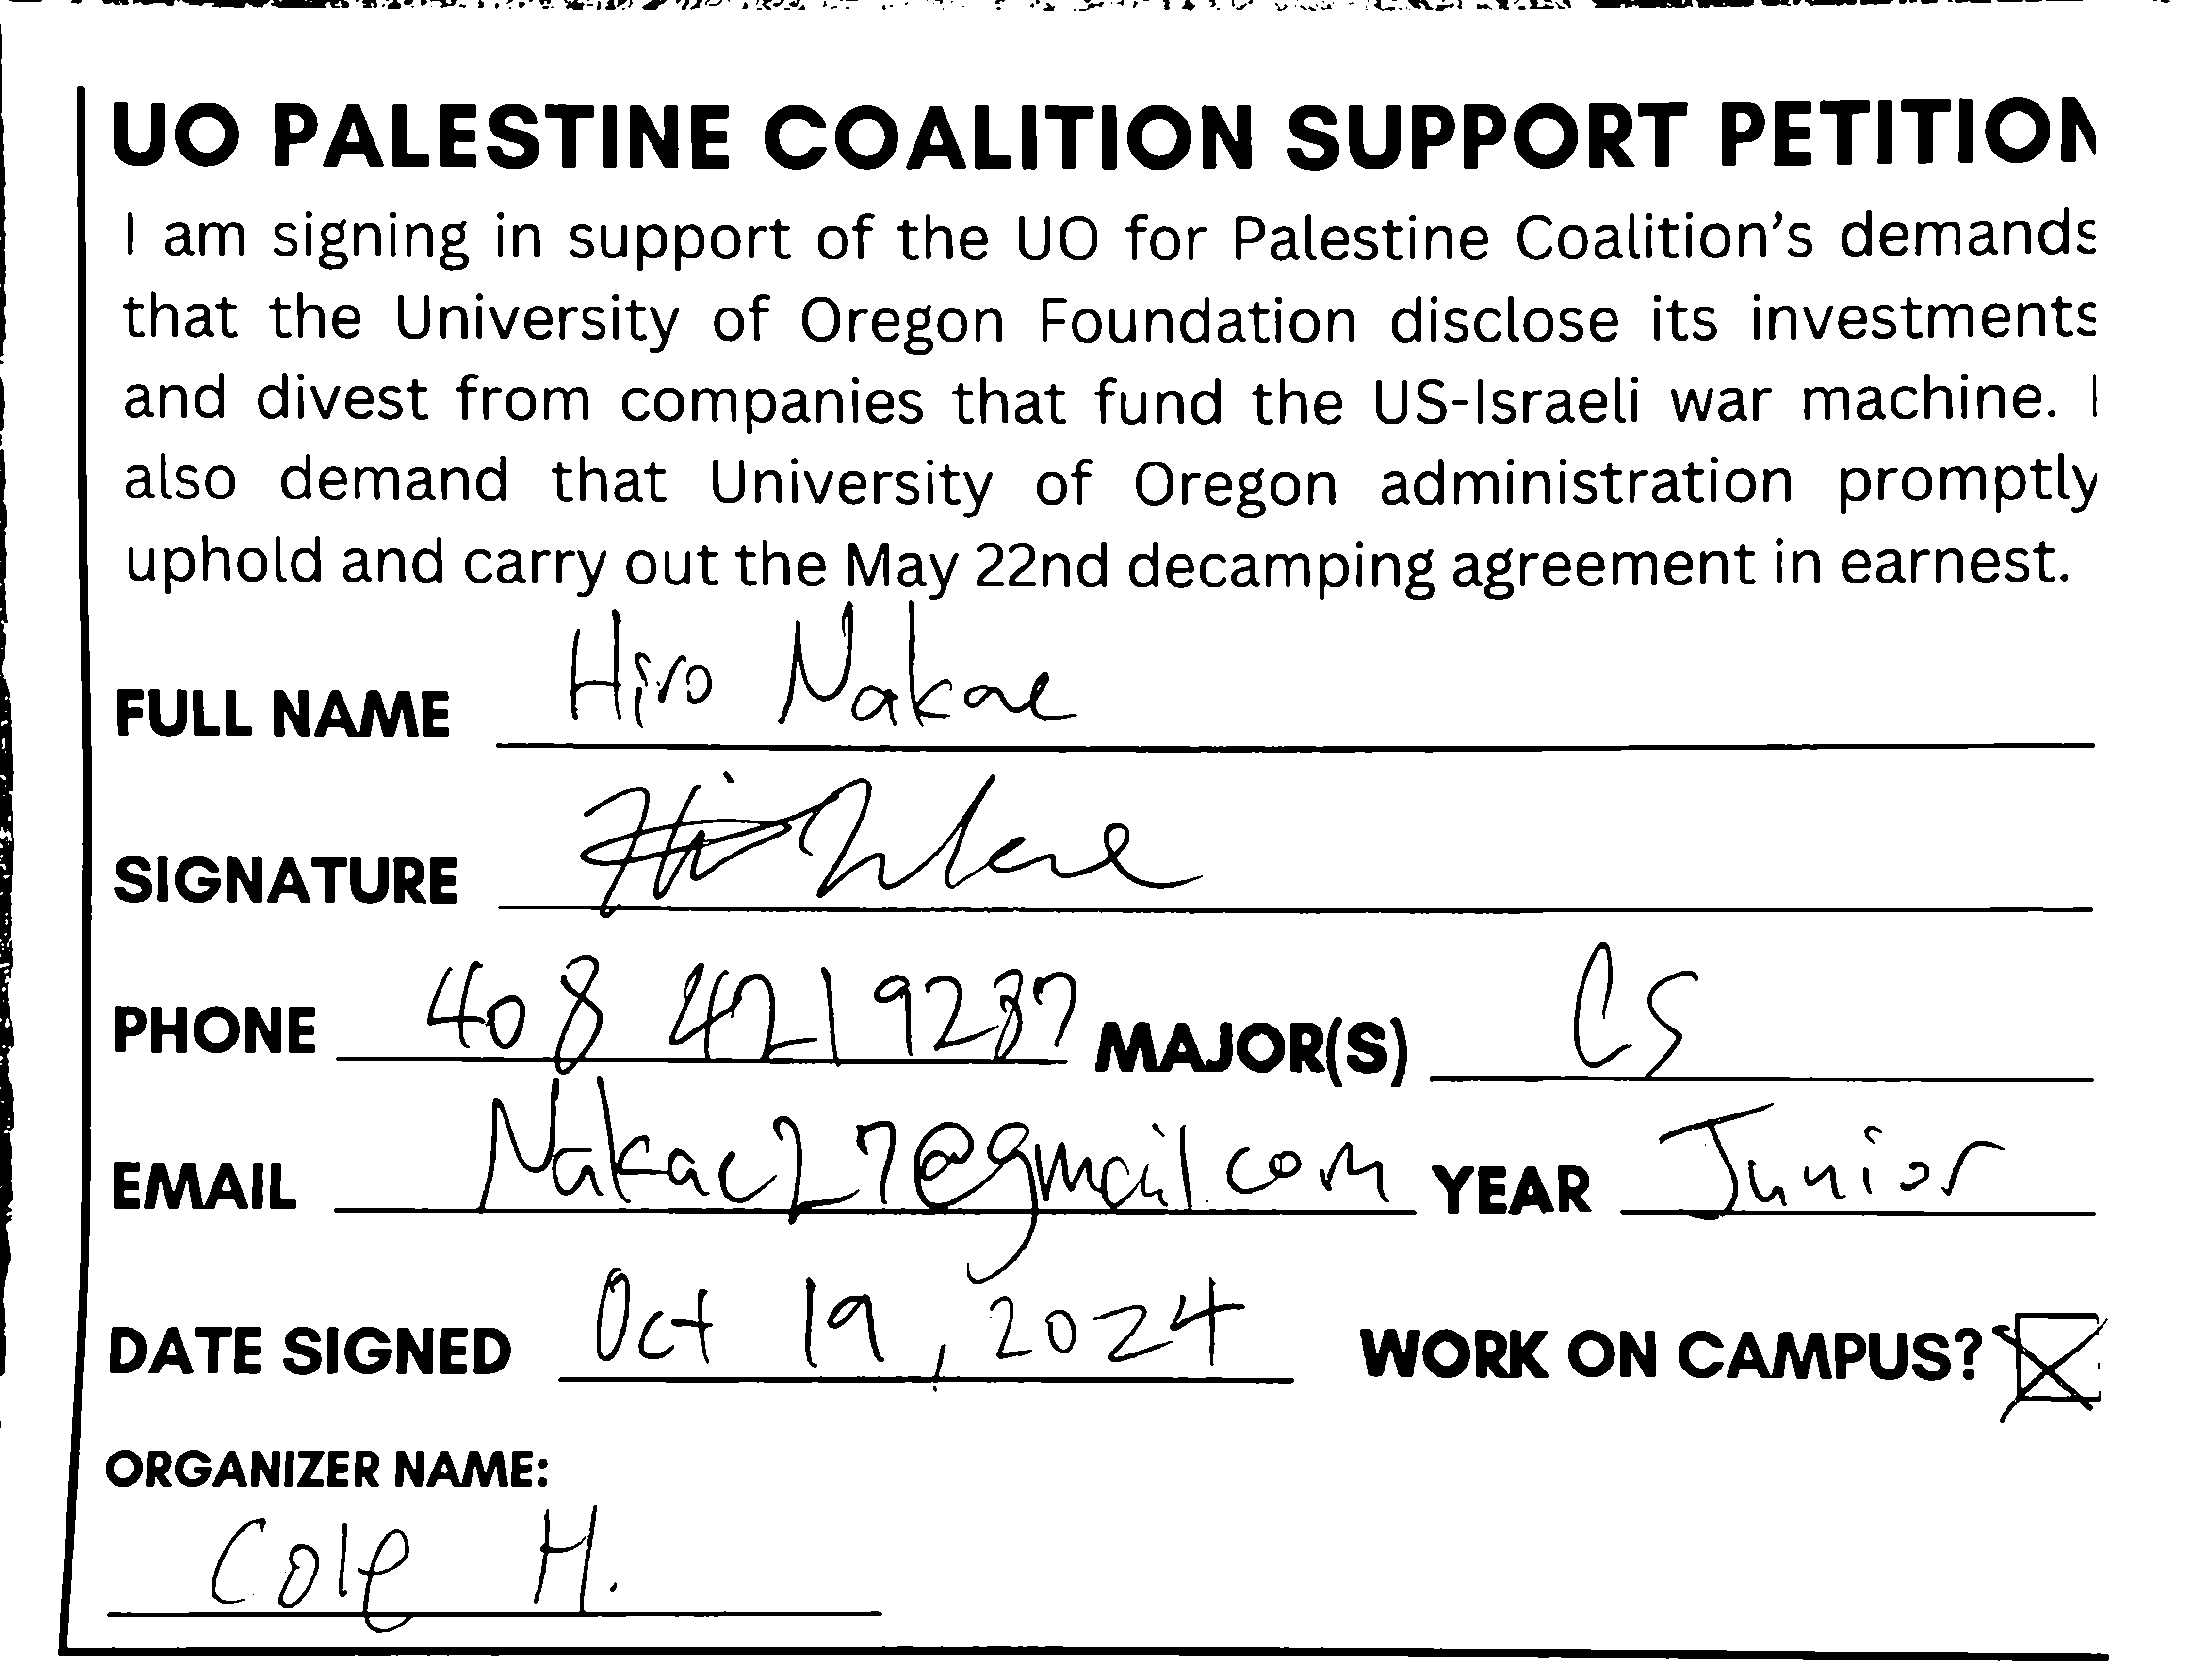 UO PALESTINE COALITION SUPPORT PETITION
I am signing in support of the UO for Palestine Coalition's demands
that the University of Oregon Foundation disclose its investments
and divest from companies that fund the US-Israeli war machine. I
also demand that University of Oregon administration promptly
uphold and carry out the May 22nd decamping agreement in earnest.
FULL NAME Hiro Nakae
SIGNATURE
PHONE 408 4219237 MAJOR(S) CS
EMAIL Nakae27@gmail.com YEAR Junior
DATE SIGNED Oct 19, 2024 WORK ON CAMPUS?
ORGANIZER NAME:
Cole H.